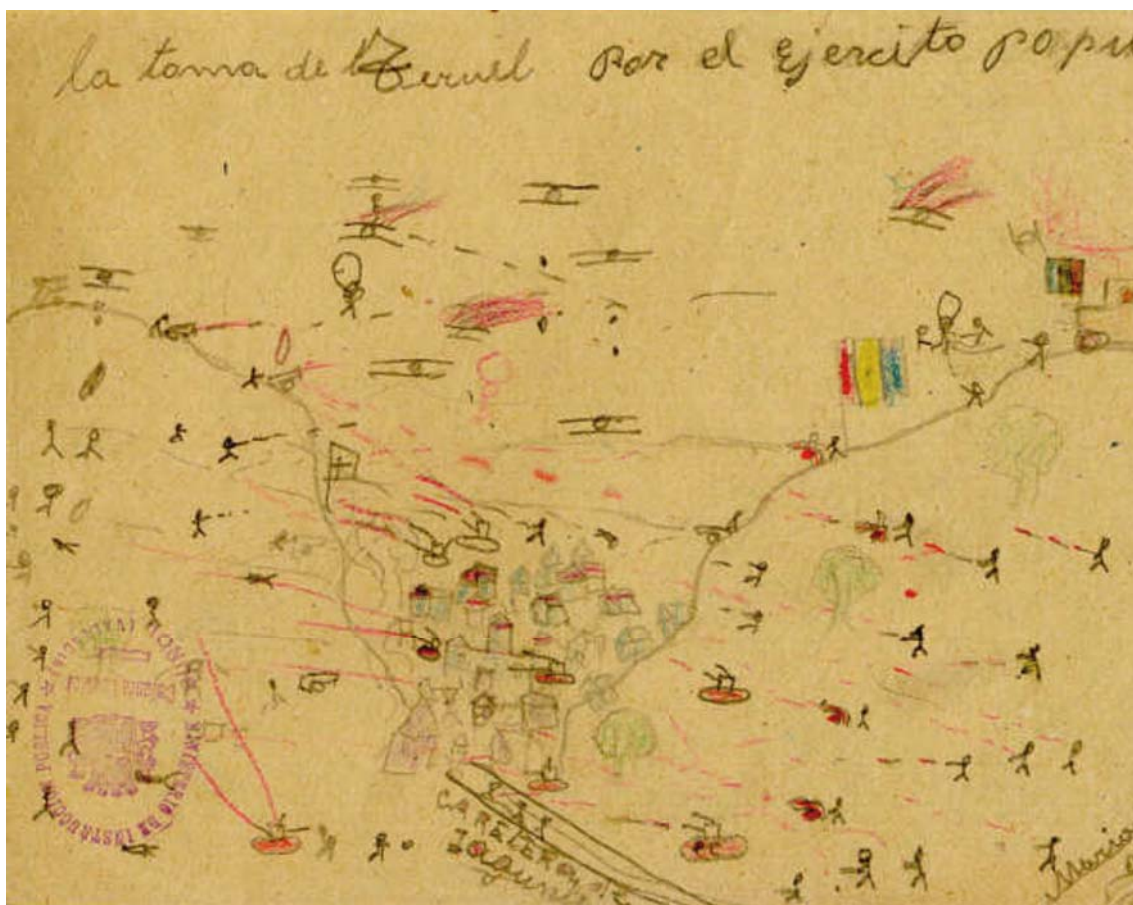 la toma de Teruel por el ejercito popu
CARETERA DE
Sagunt
MINISTERIO DE INSTRUCCIÓN PUBLICA
Maria